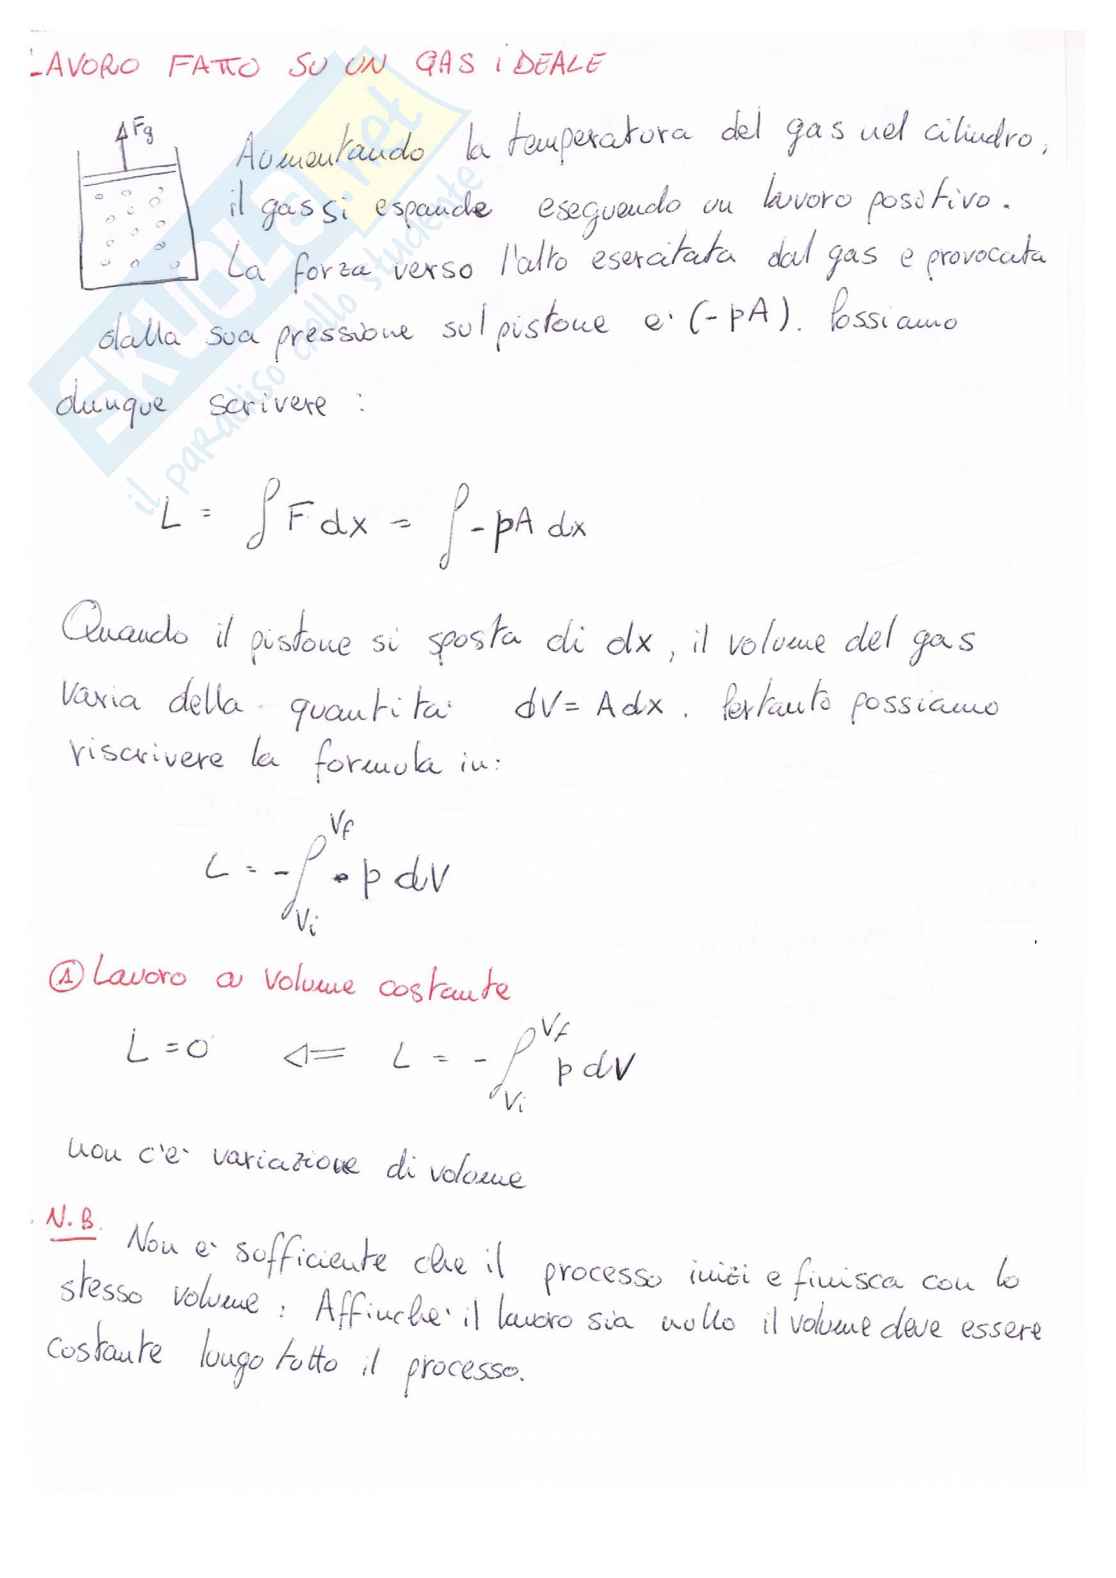 LAVORO FATTO SU UN GAS IDEALE
Fg
Aumentando la temperatura del gas nel cilindro,
il gas si espande eseguendo un lavoro positivo.
La forza verso l'alto esercitata dal gas e provocata
dalla sua pressione sul pistone e' (-pA). Possiamo
dunque scrivere :
L = ∫ F dx = ∫ -pA dx
Quando il pistone si sposta di dx, il volume del gas
varia della quantita' dV = A dx. Pertanto possiamo
riscrivere la formula in:
L = - ∫_{Vi}^{Vf} p dV
① Lavoro a volume costante
L = 0 ⇐ L = - ∫_{Vi}^{Vf} p dV
non c'e' variazione di volume
N.B. Non e' sufficiente che il processo inizi e finisca con lo
stesso volume: Affinche' il lavoro sia nullo il volume deve essere
costante lungo tutto il processo.
SKUOLA.net
il paradiso dello studente